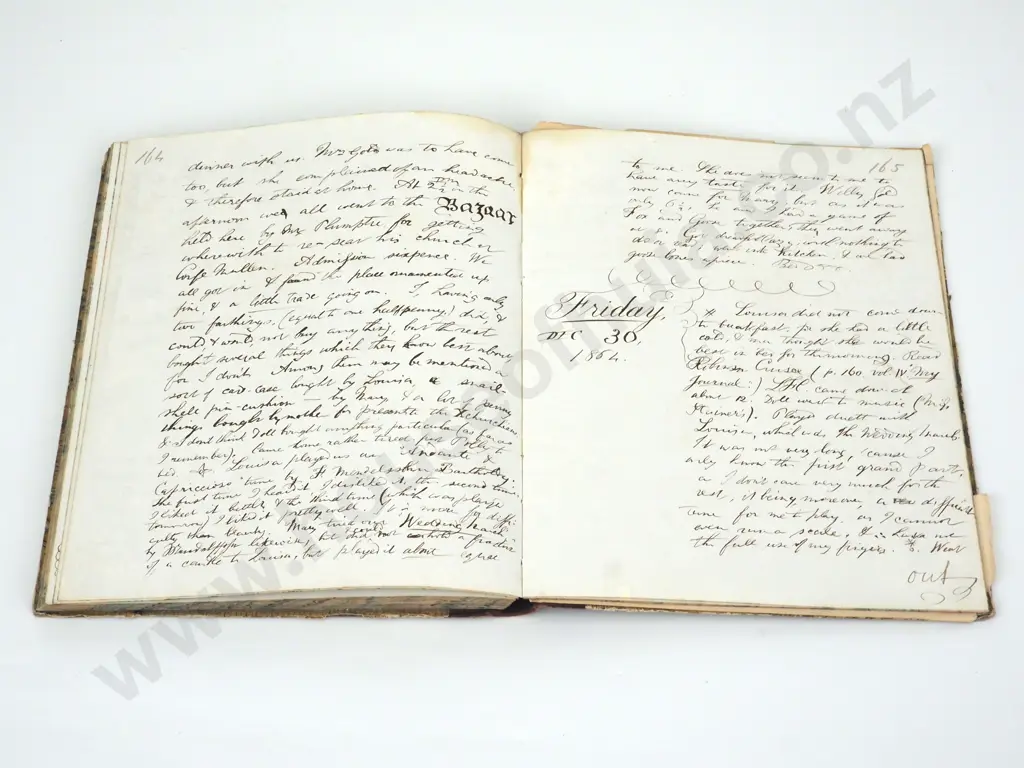 164
dinner with us. Mrs Gold was to have come
too, but she complained of an headache,
& therefore staid at home. At 2 1/2 in the
afternoon we all went to the Bazaar
held here by Mr Plumptre for getting
wherewith to re-seat his church at
Corfe Mullen. Admission sixpence. We
all got in & found the place ornamented up
fine, & a little trade going on. I, having only
two farthings, (equal to one halfpenny) did, &
could, & would, not buy anything, but the rest
bought several things which they know best about
for I don't. Among them may be mentioned a
sort of card-case bought by Louisa, a snail
shell pin-cushion — by Mary & a lot of penny
things bought by mother for presents to the
& I don't think Doll bought anything particular (as far as
I remember). Came home rather tired
Louisa played us an Andante &
Capriccioso tune by F. Mendelssohn Bartholdy.
The first time I heard it I disliked it, the second time
I liked it better, & the third time (which was played
tomorrow) I liked it pretty well. It is more for diffi-
culty than beauty. Mary tried our Wedding March
by Mendelssohn likewise, but she could not hold a
of a candle to Louisa, but played it about
165
to me. She does not seem to me to
have any taste for it. Willy
now came for Mary, but as it was
only 6 1/2, he and I had a game of
Fox and Geese together. They went away
at 7. Got dreadfully lazy, and nothing to
do & read, went into kitchen, & we had
goose bones apiece. Bed
Friday,
DEC 30,
1864.
Louisa did not come down
to breakfast, for she had a little
cold, & ma thought she would be
best in bed for the morning. Read
Robinson Crusoe (p. 160 vol IV My
Journal:) came down at
about 12. Doll went to music (Miss
). Played duett with
Louisa, which was The Wedding March
It was not very long, 'cause I
only know the first grand part,
& I don't care very much for the
rest, it being moreover, a difficult
tune for me to play. as I cannot
even run a scale, & ∴ have not
the full use of my fingers. Went
out
www. .co.nz